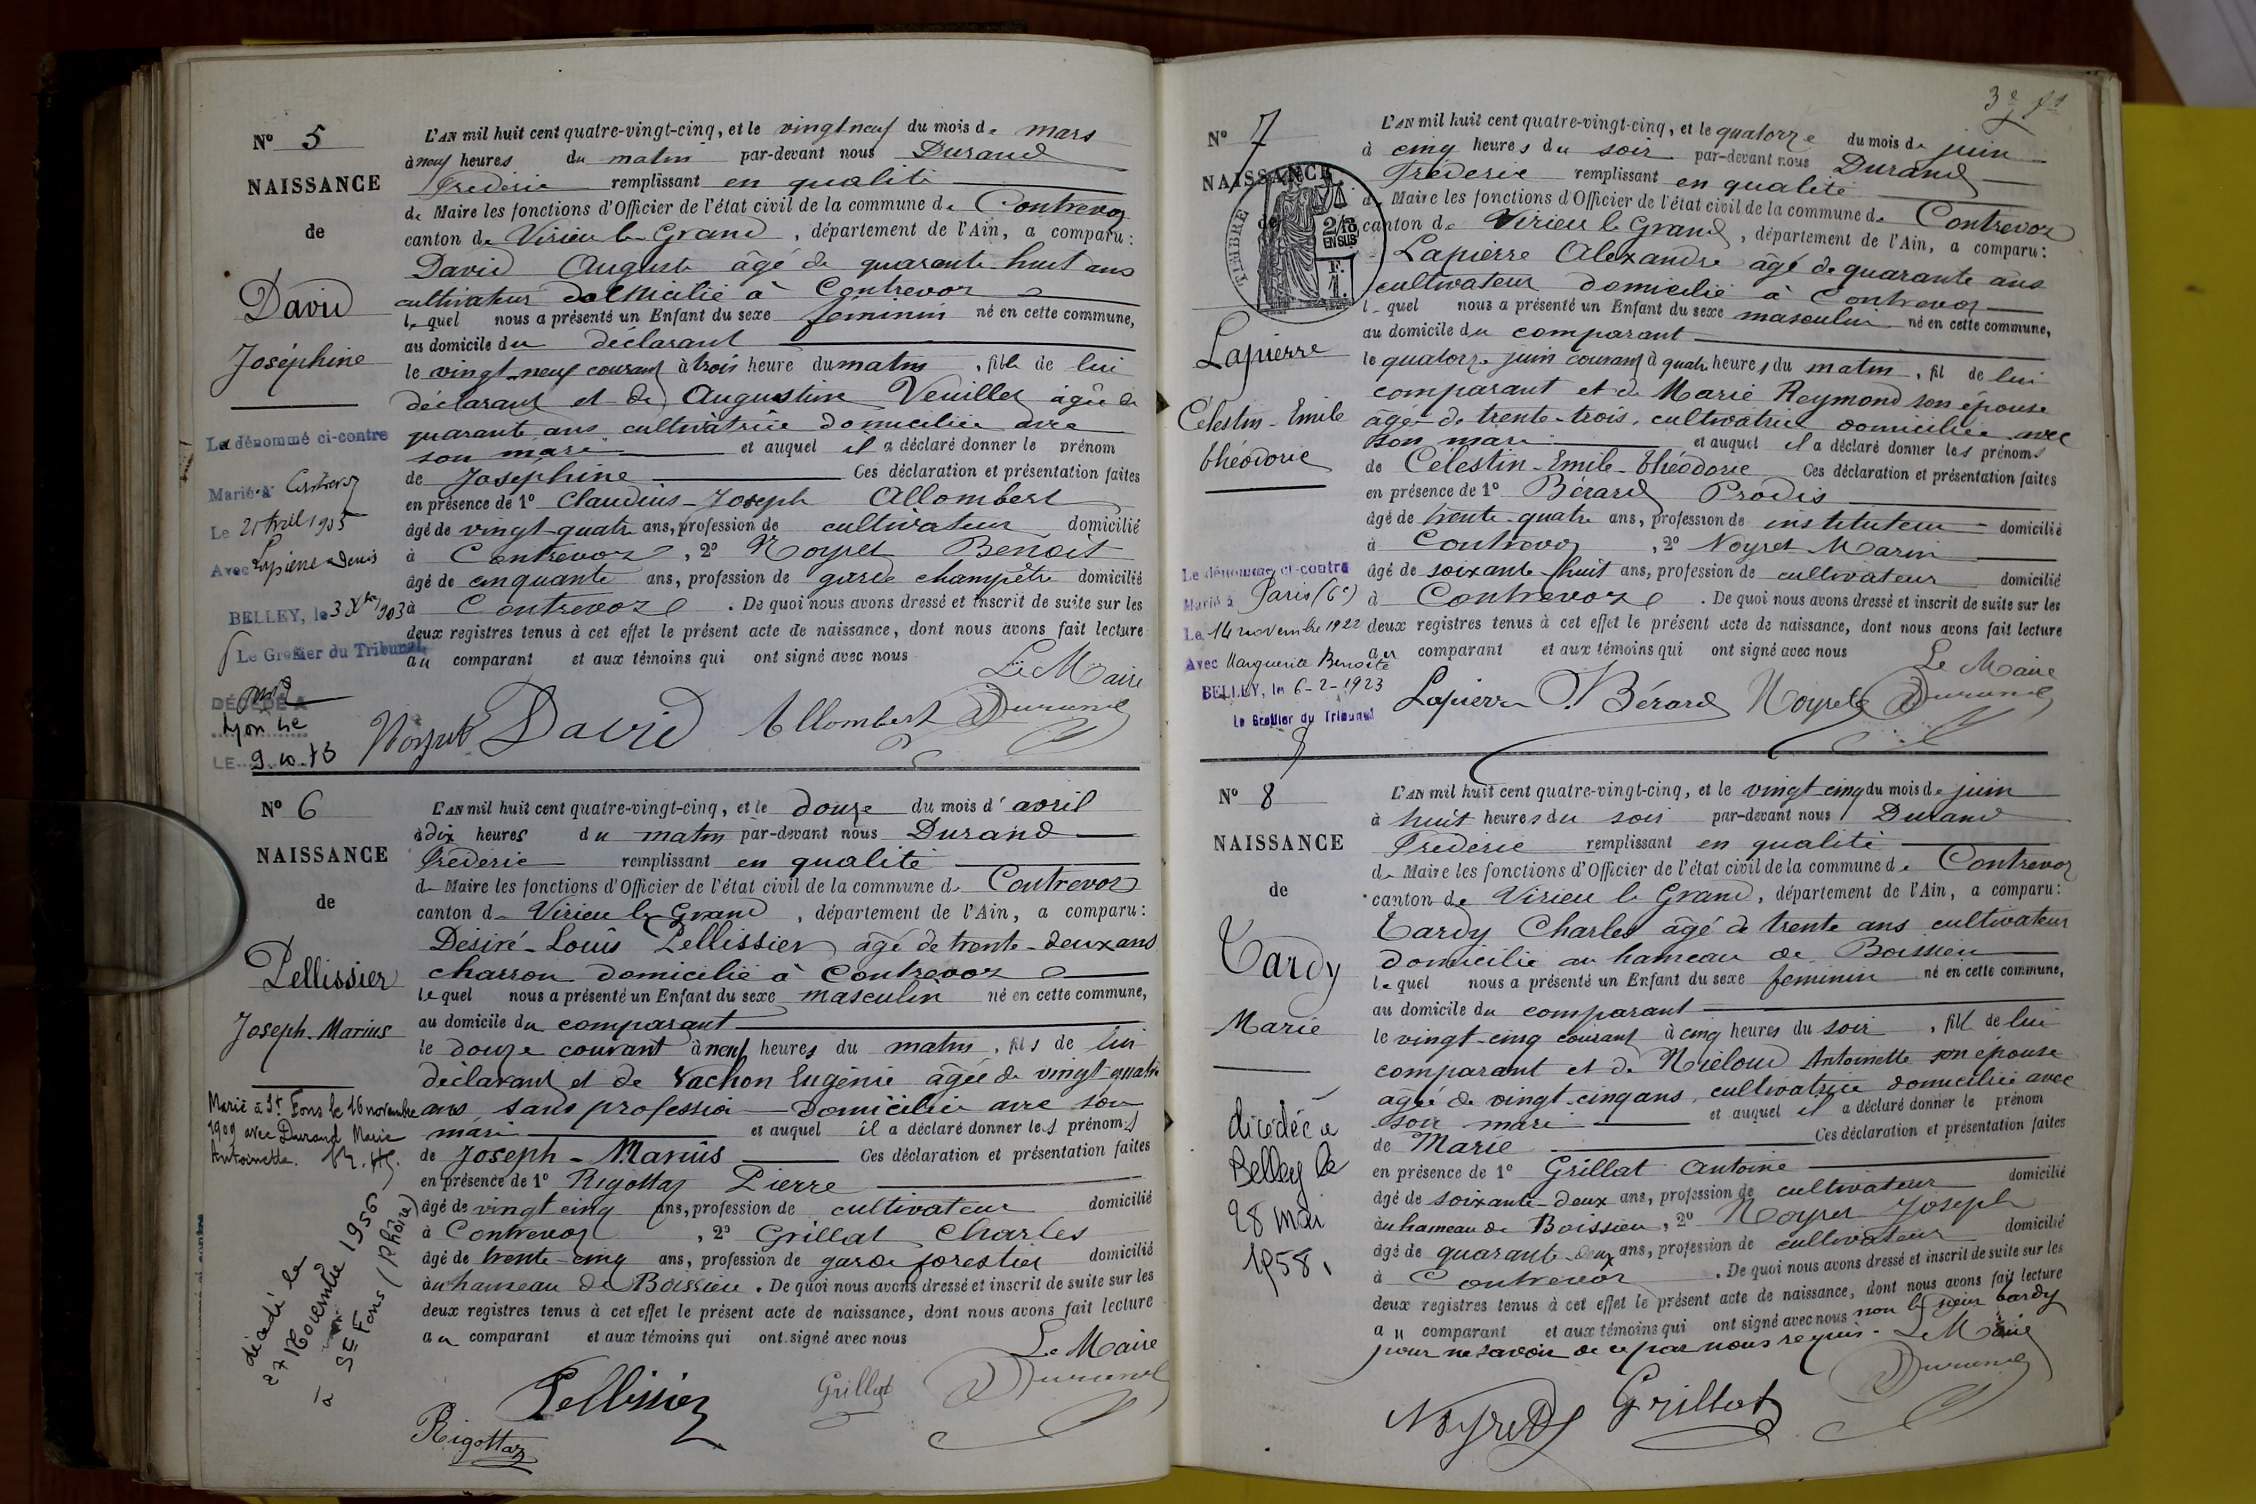 Nº 5
NAISSANCE
de
David
Joséphine
Le dénommé ci-contre
Marié à Contrevoz
Le 21 Avril 1905
Avec Lapierre Denis
BELLEY, le 3 Xbre 1903
Le Greffier du Tribunal,
DÉCÉDÉ A
Lyon 4e
LE 9.10.73
L'AN mil huit cent quatre-vingt-cinq, et le vingt neuf du mois de mars
à neuf heures du matin par-devant nous Durand
Frédéric remplissant en qualité
de Maire les fonctions d'Officier de l'état civil de la commune de Contrevoz
canton de Virieu le Grand, département de l'Ain, a comparu:
David Auguste âgé de quarante-huit ans
cultivateur domicilié à Contrevoz
lequel nous a présenté un Enfant du sexe féminin né en cette commune,
au domicile du déclarant
le vingt-neuf courant à trois heure du matin, fille de lui
déclarant et de Augustine Veuillet âgée de
quarante ans cultivatrice domiciliée avec
son mari et auquel il a déclaré donner le prénom
de Joséphine Ces déclaration et présentation faites
en présence de 1º Claudius-Joseph Allombert
âgé de vingt-quatre ans, profession de cultivateur domicilié
à Contrevoz, 2º Noyret Benoit
âgé de cinquante ans, profession de garde champêtre domicilié
à Contrevoz. De quoi nous avons dressé et inscrit de suite sur les
deux registres tenus à cet effet le présent acte de naissance, dont nous avons fait lecture
au comparant et aux témoins qui ont signé avec nous
Le Maire
Noyret David Allombert Durand
Nº 6
NAISSANCE
de
Pellissier
Joseph. Marius
Marié à St Fons le 16 novembre
1909 avec Durand Marie
Antoinette.
décédé le
27 Novembre 1956
à St Fons (Rhône)
L'AN mil huit cent quatre-vingt-cinq, et le douze du mois d'avril
à dix heures du matin par-devant nous Durand
Frédéric remplissant en qualité
de Maire les fonctions d'Officier de l'état civil de la commune de Contrevoz
canton de Virieu le Grand, département de l'Ain, a comparu:
Désiré-Louis Pellissier âgé de trente-deux ans
charron domicilié à Contrevoz
lequel nous a présenté un Enfant du sexe masculin né en cette commune,
au domicile du comparant
le douze courant à neuf heures du matin, fils de lui
déclarant et de Vachon Eugénie âgée de vingt-quatre
ans sans profession domiciliée avec son
mari et auquel il a déclaré donner les prénoms
de Joseph-Marius Ces déclaration et présentation faites
en présence de 1º Rigottaz Pierre
âgé de vingt cinq ans, profession de cultivateur domicilié
à Contrevoz, 2º Grillat Charles
âgé de trente-cinq ans, profession de garde forestier domicilié
au hameau de Boissieu. De quoi nous avons dressé et inscrit de suite sur les
deux registres tenus à cet effet le présent acte de naissance, dont nous avons fait lecture
au comparant et aux témoins qui ont signé avec nous
Le Maire
Pellissier Grillat Durand
Rigottaz
Nº 7
NAISSANCE
de
TIMBRE
2/10
EN SUS
F.
1.
Lapierre
Célestin-Emile
théodore
Le dénommé ci-contre
Marié à Paris (6e)
Le 14 novembre 1922
Avec Marguerite Benoite
BELLEY, le 6-2-1923
Le Greffier du Tribunal
L'AN mil huit cent quatre-vingt-cinq, et le quatorze du mois de juin
à cinq heures du soir par-devant nous Durand
Frédéric remplissant en qualité
de Maire les fonctions d'Officier de l'état civil de la commune de Contrevoz
canton de Virieu le Grand, département de l'Ain, a comparu:
Lapierre Alexandre âgé de quarante ans
cultivateur domicilié à Contrevoz
lequel nous a présenté un Enfant du sexe masculin né en cette commune,
au domicile du comparant
le quatorze juin courant à quatre heures du matin, fil de lui
comparant et de Marie Reymond son épouse
âgée de trente-trois, cultivatrice domiciliée avec
son mari et auquel il a déclaré donner les prénoms
de Célestin-Emile-théodore Ces déclaration et présentation faites
en présence de 1º Bérard Prodis
âgé de trente-quatre ans, profession de instituteur domicilié
à Contrevoz, 2º Noyret Marin
âgé de soixante-huit ans, profession de cultivateur domicilié
à Contrevoz. De quoi nous avons dressé et inscrit de suite sur les
deux registres tenus à cet effet le présent acte de naissance, dont nous avons fait lecture
au comparant et aux témoins qui ont signé avec nous
Le Maire
Lapierre P. Bérard Noyret Durand
Nº 8
NAISSANCE
de
Tardy
Marie
décédée à
Belley le
28 Mai
1958.
L'AN mil huit cent quatre-vingt-cinq, et le vingt cinq du mois de juin
à huit heures du soir par-devant nous Durand
Frédéric remplissant en qualité
de Maire les fonctions d'Officier de l'état civil de la commune de Contrevoz
canton de Virieu le Grand, département de l'Ain, a comparu:
Tardy Charles âgé de trente ans cultivateur
domicilié au hameau de Boissieu
lequel nous a présenté un Enfant du sexe féminin né en cette commune,
au domicile du comparant
le vingt-cinq courant à cinq heures du soir, fille de lui
comparant et de Niéloud Antoinette son épouse
âgée de vingt-cinq ans, cultivatrice domiciliée avec
son mari et auquel il a déclaré donner le prénom
de Marie Ces déclaration et présentation faites
en présence de 1º Grillat Antoine
âgé de soixante-deux ans, profession de cultivateur domicilié
au hameau de Boissieu, 2º Noyret Joseph
âgé de quarante-deux ans, profession de cultivateur domicilié
à Contrevoz. De quoi nous avons dressé et inscrit de suite sur les
deux registres tenus à cet effet le présent acte de naissance, dont nous avons fait lecture
au comparant et aux témoins qui ont signé avec nous non le sieur tardy
pour ne savoir de ce par nous requis. Le Maire
Noyret Grillat Durand